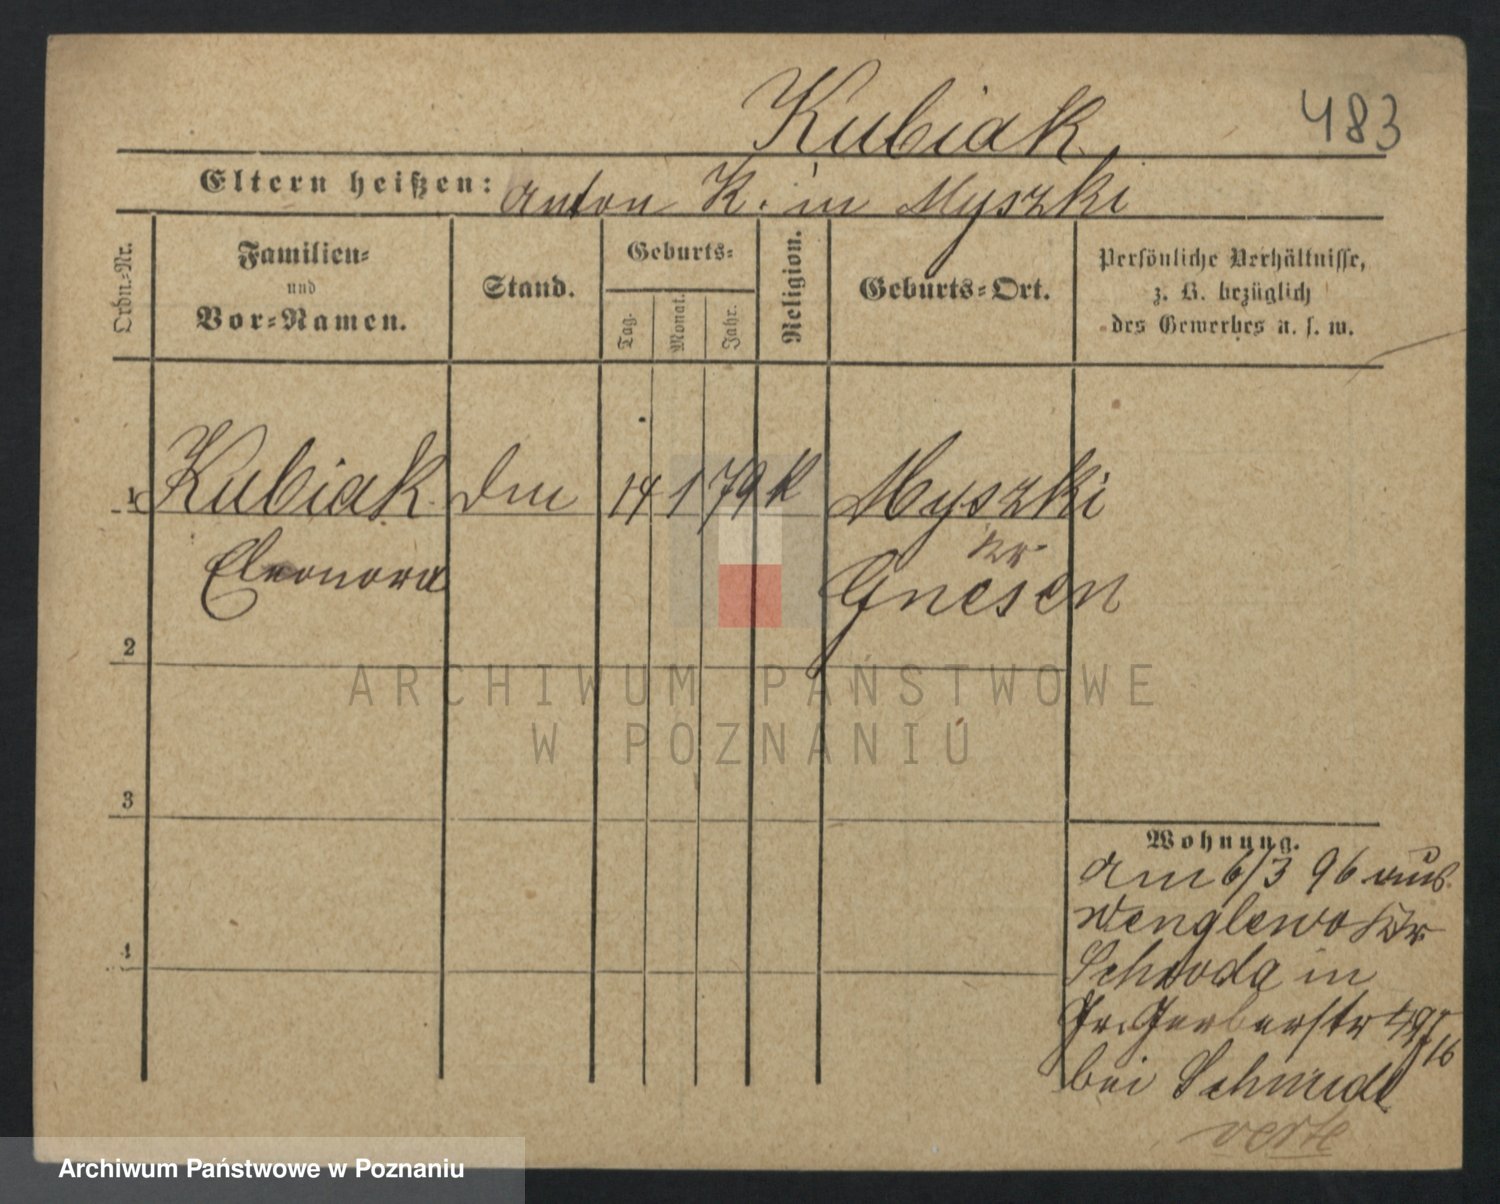 Kubiak
483
Eltern heißen: Anton K. in Myszki
Ordn.-Nr.
Familien-
und
Vor-Namen.
Stand.
Geburts-
Tag.
Monat.
Jahr.
Religion.
Geburts-Ort.
Persönliche Verhältnisse,
z. B. bezüglich
des Gewerbes u. s. w.
1 Kubiak 14 1 79 K Myszki
Eleonora
Kr
Gnesen
2
3
4
Wohnung.
Am 6/3 96 aus
Wenglewo Kr
Schroda in
Gr. Gerberstr
16
bei Schmidt
verte
ARCHIWUM PAŃSTWOWE
W POZNANIU
Archiwum Państwowe w Poznaniu